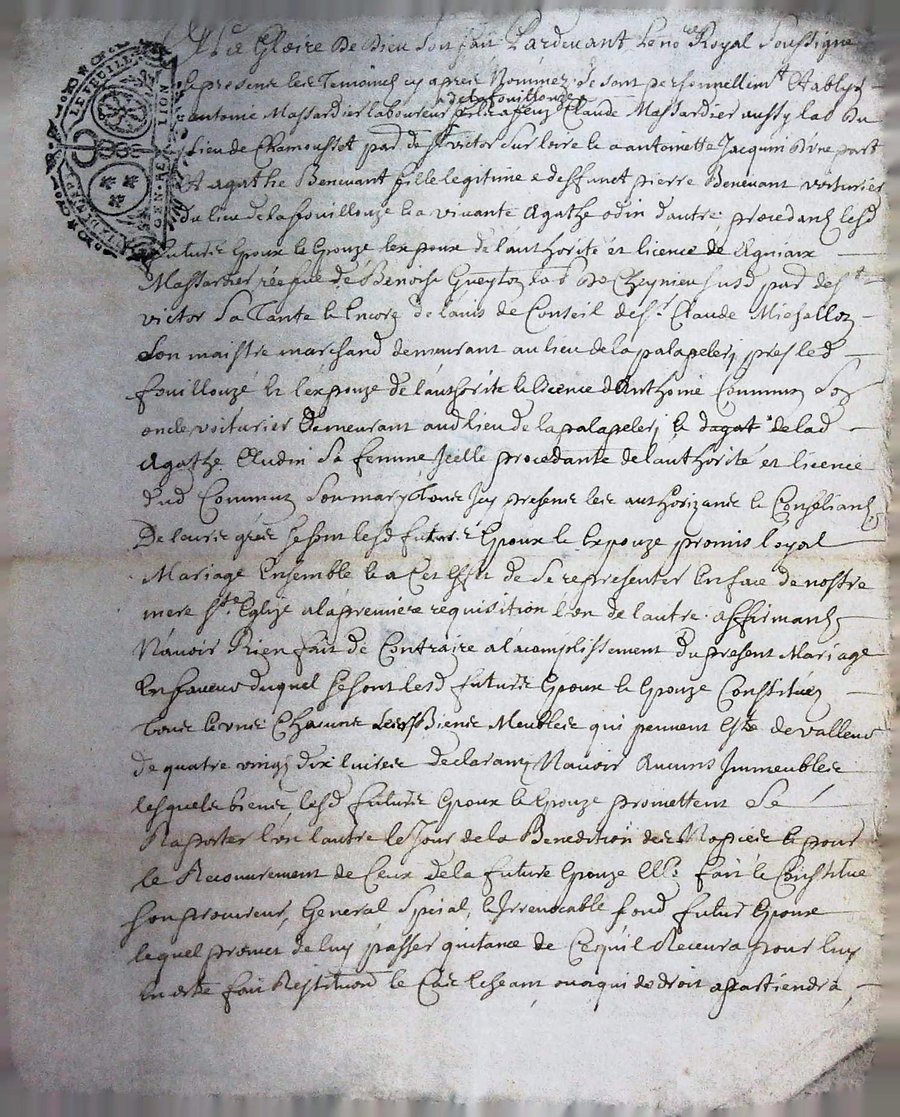 LE FEUILLE
GEN. RE LION
A La Gloire De Dieu soit fait Pardevant le no.re Royal soussigné
& presens les Temoins cy apres Nommez, se sont personnellem.t Establys
de la fouillouze
antoine Massardier laboureur fils a feu Claude Massardier aussy lab. du
Lieu de Chamousset par. de S.t victor sur loire & a antoinette Jacquin d'une part
Et agathe Benevant fille legitime a deffunct pierre Benevant voiturier
du lieu de la fouillouze & a vivante Agathe odin d'autre, procedans lesd
futurs Epoux & Epouze lexpoux de l'authorité et licence de
Massardier de Benoist lab. de par. de S.t
victor sa Tante & Encore de lavis de Conseil de s.r Claude Michallon
son maistre marchand demeurant au lieu de la palapelerj pres led
fouillouzé Et l'expouze de l'authorité & licence d'Anthoine Commun son
oncle voiturier demeurant aud lieu de la palapelerj & de lad
Agathe Audin sa femme Icelle procedante de l'authorité et licence
dud Commun son mary Tous Icy presens les authorizans & Conseliant
De leurs grés se sont lesd futurs Epoux & Expouze promis loyal
Mariage Ensemble & a Cet effet de se representer En face de nostre
mere S.te Eglize a la premiere requisition l'un de l'autre affirmants
N'avoir Rien fait de Contraire a l'acomplissement du present Mariage
En faveur duquel se sont lesd futurs Epoux & Epouze Constitués
tous Chacuns Leurs Biens Meubles qui peuvent estre de valleur
de quatre vingt dix livres declarans N'avoir Aucuns Immeubles
lesquels biens lesd futurs Epoux & Epouze promettent se
Raporter l'un l'autre le Jour de la Benediction des Nopces & pour
le Recouvrement de Ceux de la future Epouze Elle fait & Constitue
son procureur, General special, & Irrevocable sond futur Epoux
lequel promet de luy passer quitance de Ce qu'il Recevra pour luy
En estre fait Restitution le Cas lescheant ou a qui de droit apartiendra,